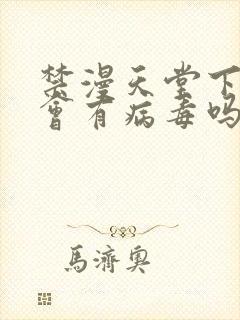 禁漫天堂下
會有病毒吗
馬濟奧